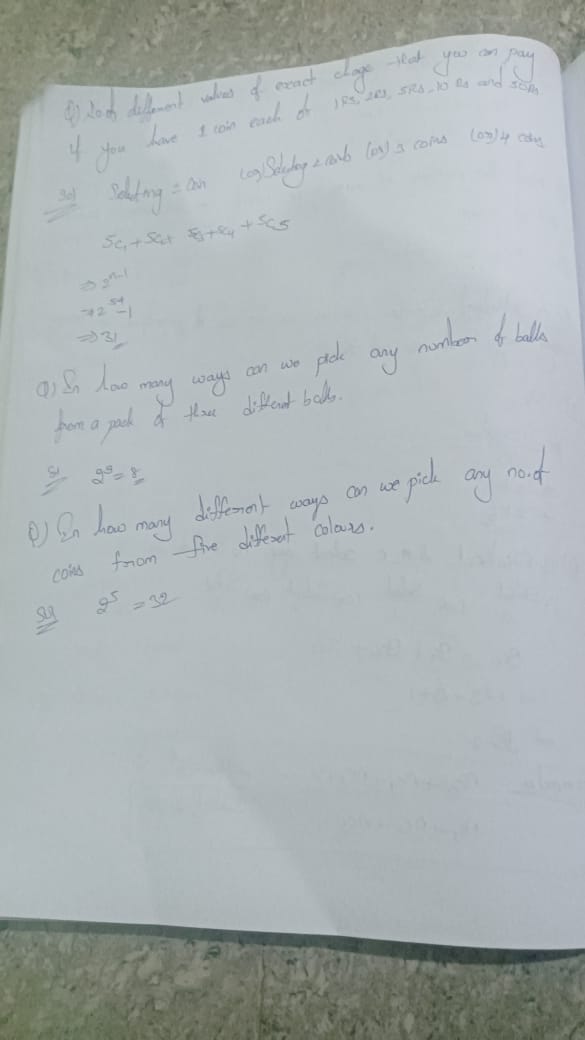 Q) No.of different values of exact chage that you can pay
if you have 1 coin each of 1RS, 2RS, 5RS, 10 Rs and 50Rs
Sol Selecting = coin (or) Selecting 2 coins (or) 3 coins (or) 4 coins
5C1 + 5C2 + 5C3 + 5C4 + 5C5
⇒ 2^n-1
⇒ 2^5-1
⇒ 31
Q) In how many ways can we pick any number of balls
from a pack of three different balls.
Sol 2^3 = 8
Q) In how many different ways can we pick any no.of
coins from five different colours.
Sol 2^5 = 32